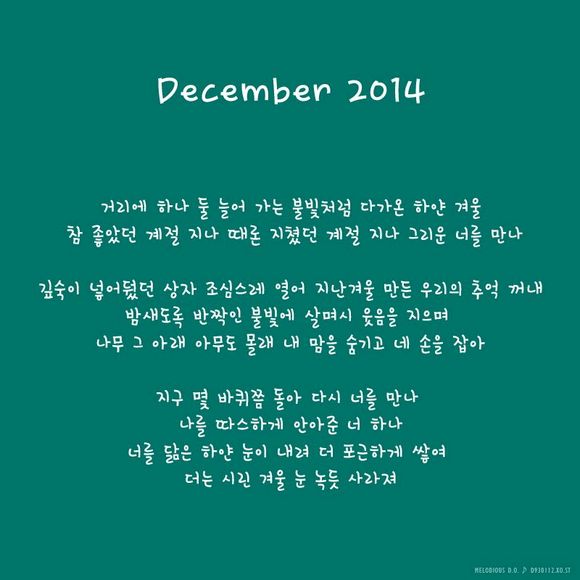 December 2014
거리에 하나 둘 늘어 가는 불빛처럼 다가온 하얀 겨울
참 좋았던 계절 지나 때론 지쳤던 계절 지나 그리운 너를 만나
깊숙이 넣어뒀던 상자 조심스레 열어 지난겨울 만든 우리의 추억 꺼내
밤새도록 반짝인 불빛에 살며시 웃음을 지으며
나무 그 아래 아무도 몰래 내 맘을 숨기고 네 손을 잡아
지구 몇 바퀴쯤 돌아 다시 너를 만나
나를 따스하게 안아준 너 하나
너를 닮은 하얀 눈이 내려 더 포근하게 쌓여
더는 시린 겨울 눈 녹듯 사라져
MELODIOUS D.O. ♪ D930112.XO.ST